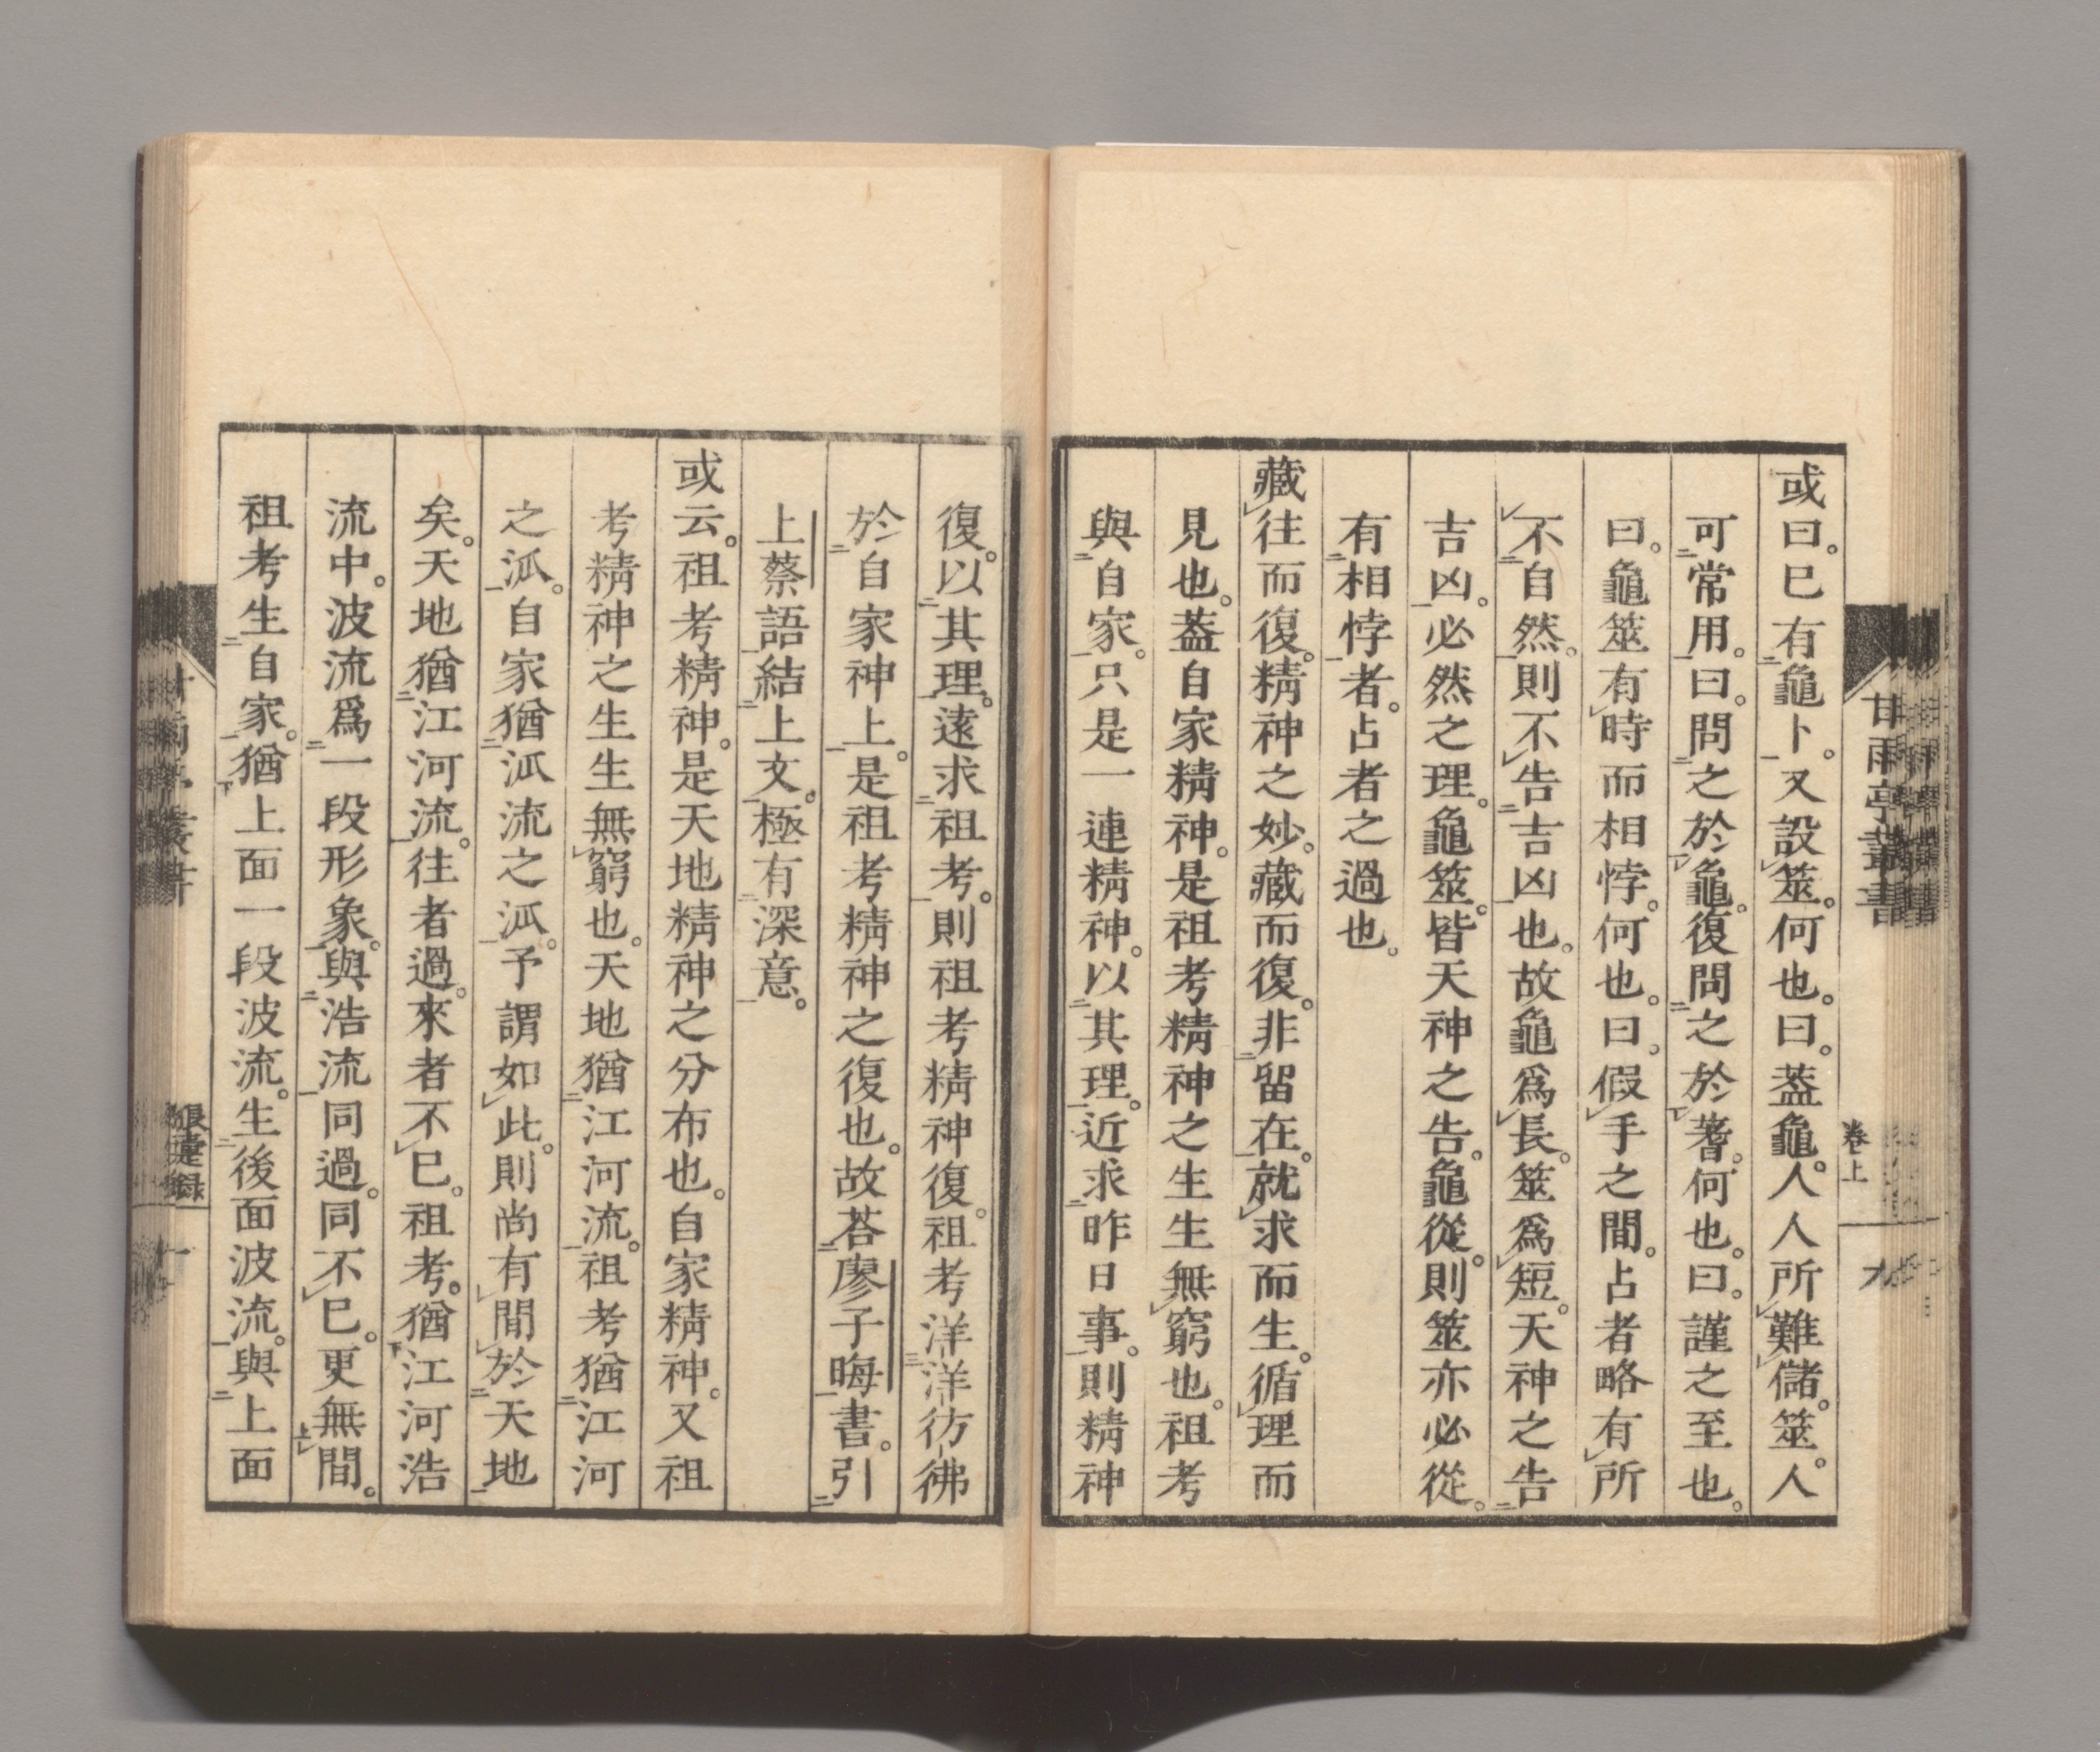 甘雨亭叢書
卷上
九
或曰。已有龜卜。又設筮。何也。曰。蓋龜。人人所難儲。筮。人
可常用。曰。問之於龜。復問之於蓍。何也。曰。謹之至也。
曰。龜筮有時而相悖。何也。曰。假手之間。占者略有所
不自然。則不告吉凶也。故龜爲長。筮爲短。天神之告
吉凶。必然之理。龜筮。皆天神之告。龜從。則筮亦必從。
有相悖者。占者之過也。
藏往而復。精神之妙。藏而復。非留在。就求而生。循理而
見也。蓋自家精神。是祖考精神之生生無窮也。祖考
與自家。只是一連精神。以其理。近求昨日事。則精神
復。以其理。遠求祖考。則祖考精神復。祖考洋洋彷彿
於自家神上。是祖考精神之復也。故荅廖子晦書。引
上蔡語結上文。極有深意。
或云。祖考精神。是天地精神之分布也。自家精神。又祖
考精神之生生無窮也。天地猶江河流。祖考猶江河
之泒。自家猶泒流之泒。予謂如此。則尚有間於天地
矣。天地猶江河流。往者過。來者不已。祖考。猶江河浩
流中。波流爲一段形象。與浩流同過。同不已。更無間。
祖考生自家。猶上面一段波流。生後面波流。與上面
狼疐錄